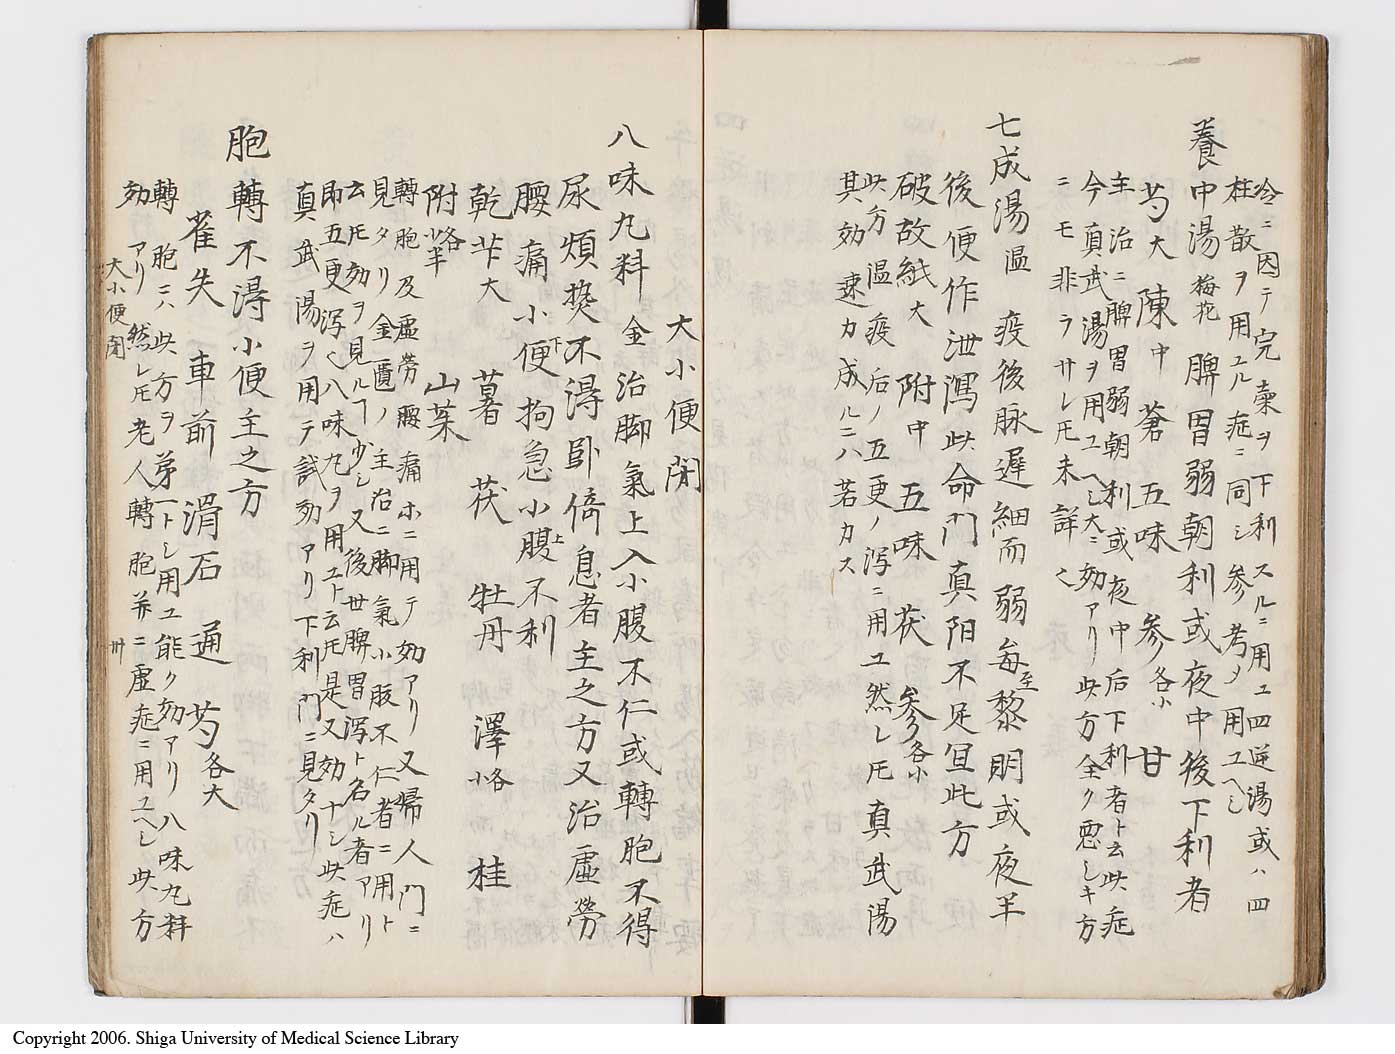 冷ニ因テ完糓ヲ下利スルニ用ユ四逆湯或ハ四
柱散ヲ用ユル症ニ同シ参考メ用ユヘシ
養中湯 梅花 脾胃弱朝利或夜中後下利者
芍大 陳中 蒼 五味 参各小 甘
主治ニ脾胃弱朝利或夜中后下利者ト云此症
今真武湯ヲ用ユヘシ大ニ効アリ此方全ク悪シキ方
ニモ非ラサレ𪜈未詳之
七成湯 温 疫後脉遅細而弱毎至黎明或夜半
後便作泄瀉此命門真阳不足宜此方
破故紙大 附中 五味 茯 参各小
此方温疫后ノ五更ノ瀉ニ用ユ然レ𪜈真武湯
其効速カ成ルニハ若カス
大小便閉
八味丸料 金 治脚氣上入小腹不仁或轉胞不得
尿煩𤍠不得臥倚息者主之方又治虚勞
腰痛小便下拘急小腹上不利
乾芐大 薯 茯 牡丹 澤各小 桂
附各小半 山茱
轉胞及虚労腰痛ホニ用テ効アリ又婦人門ニ
見タリ金匱ノ主治ニ脚氣小腹不仁者ニ用ト
云𪜈効ヲ見ルヿ少シ又後世脾胃瀉ト名ル者アリ
即五更瀉之八味丸ヲ用ユト云𪜈是又効ナシ此症ハ
真武湯ヲ用テ試効アリ下利門ニ見タリ
胞轉不淂小便主之方
雀失 車前 滑石 通 芍各大
轉胞ニハ此方ヲ第一トシ用ユ能ク効アリ八味丸料
効アリ然レ𪜈老人轉胞并ニ虚症ニ用ユヘシ此方
大小便閉 卅
Copyright 2006. Shiga University of Medical Science Library